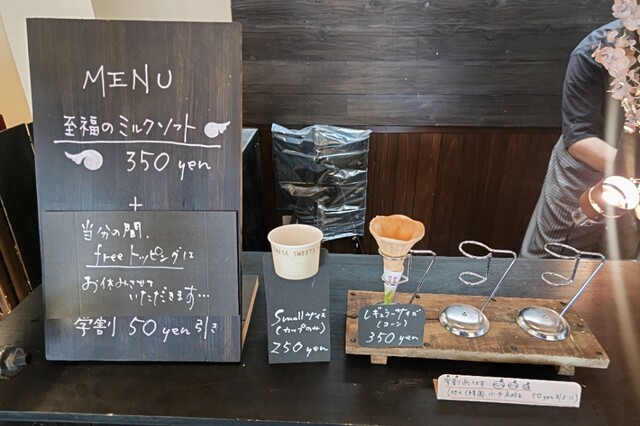 MENU
至福のミルクソフト
350 yen
+
当分の間、
freeトッピングは
お休みさせて
いただきます…
学割 50 yen 引き
Smallサイズ
(カップのみ)
250 yen
レギュラーサイズ
(コーン)
350 yen
学割あります